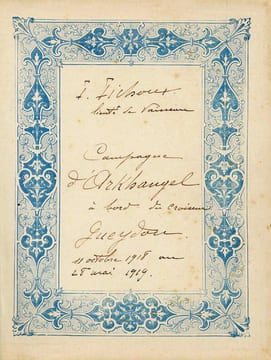 F. Fichoux
lieutt de Vaisseau
Campagne
d'Arkhangel
à bord du croiseur
Gueydon
11 octobre 1918 au
28 mai 1919.